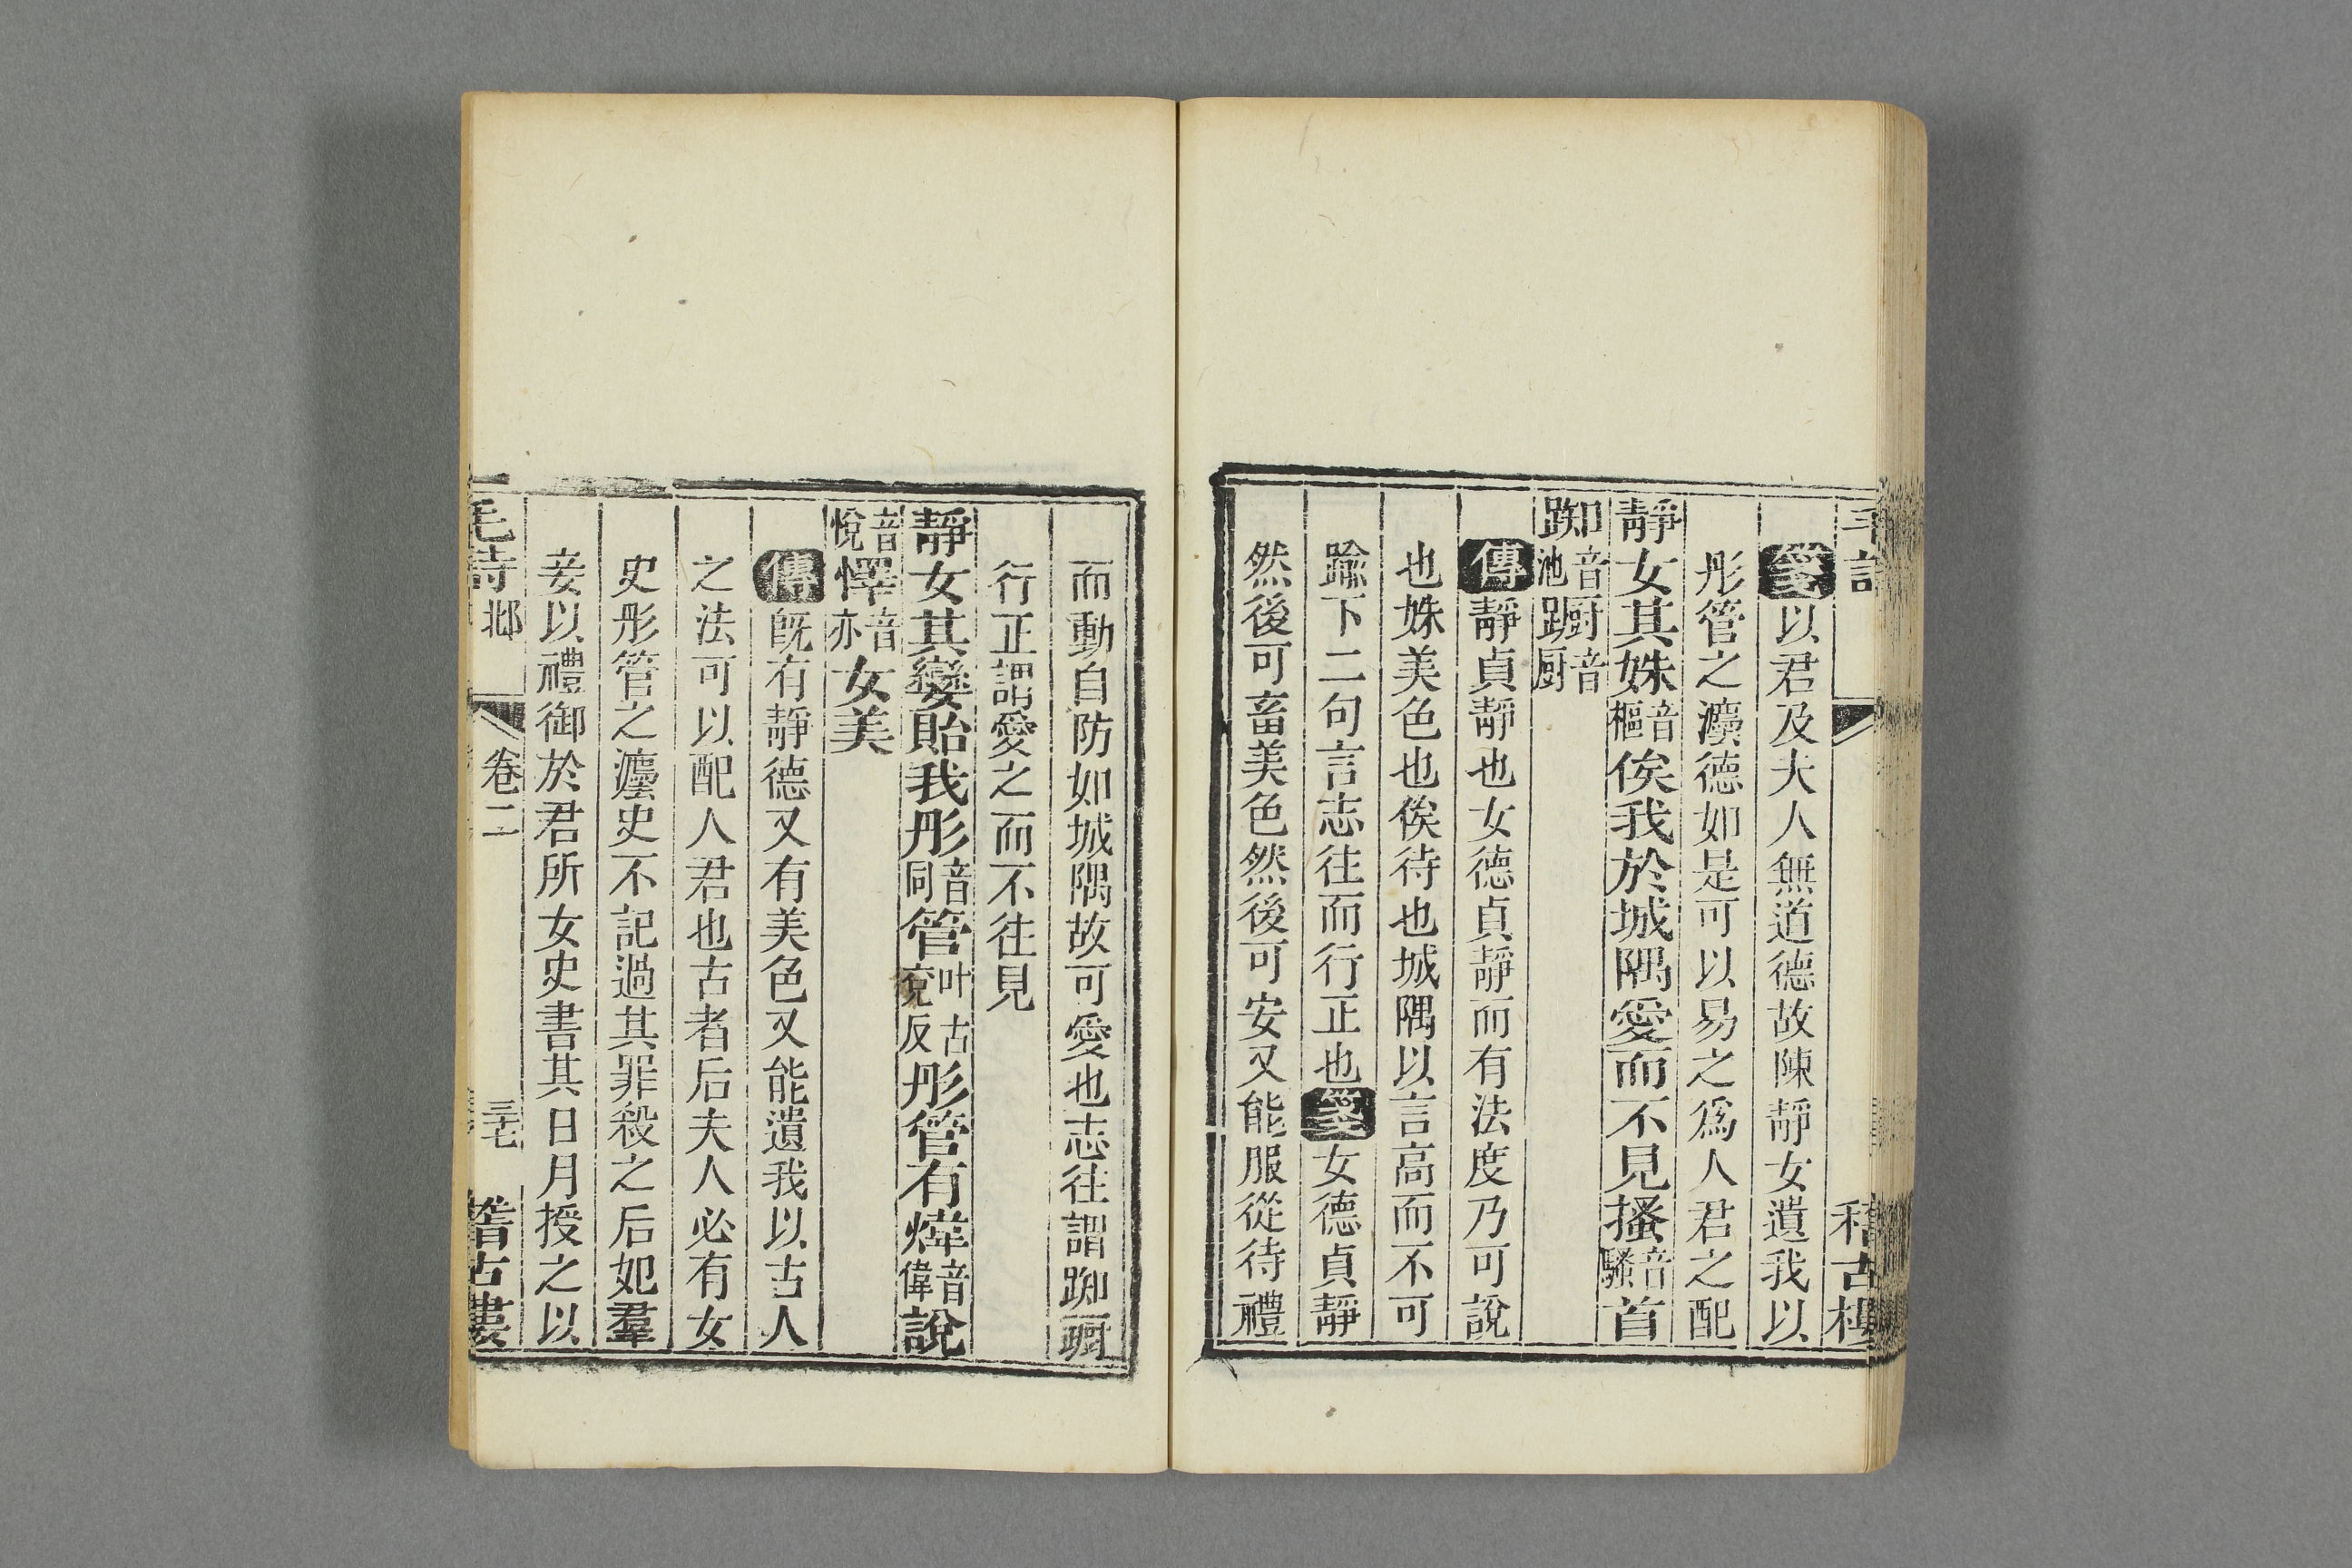 毛詩 稽古樓
箋以君及夫人無道德故陳靜女遺我以
彤管之灋德如是可以易之爲人君之配
靜女其姝音樞俟我於城隅愛而不見搔音騷首
踟音池蹰音厨
傳靜貞靜也女德貞靜而有法度乃可說
也姝美色也俟待也城隅以言高而不可
踰下二句言志往而行正也箋女德貞靜
然後可畜美色然後可安又能服從待禮
而動自防如城隅故可愛也志往謂踟蹰
行正謂愛之而不往見
靜女其孌貽我彤音同管叶古兗反彤管有煒音偉說
音悅懌音亦女美
傳旣有靜德又有美色又能遺我以古人
之法可以配人君也古者后夫人必有女
史彤管之灋史不記過其罪殺之后妃羣
妾以禮御於君所女史書其日月授之以
毛詩 邶 卷二 三七 稽古樓